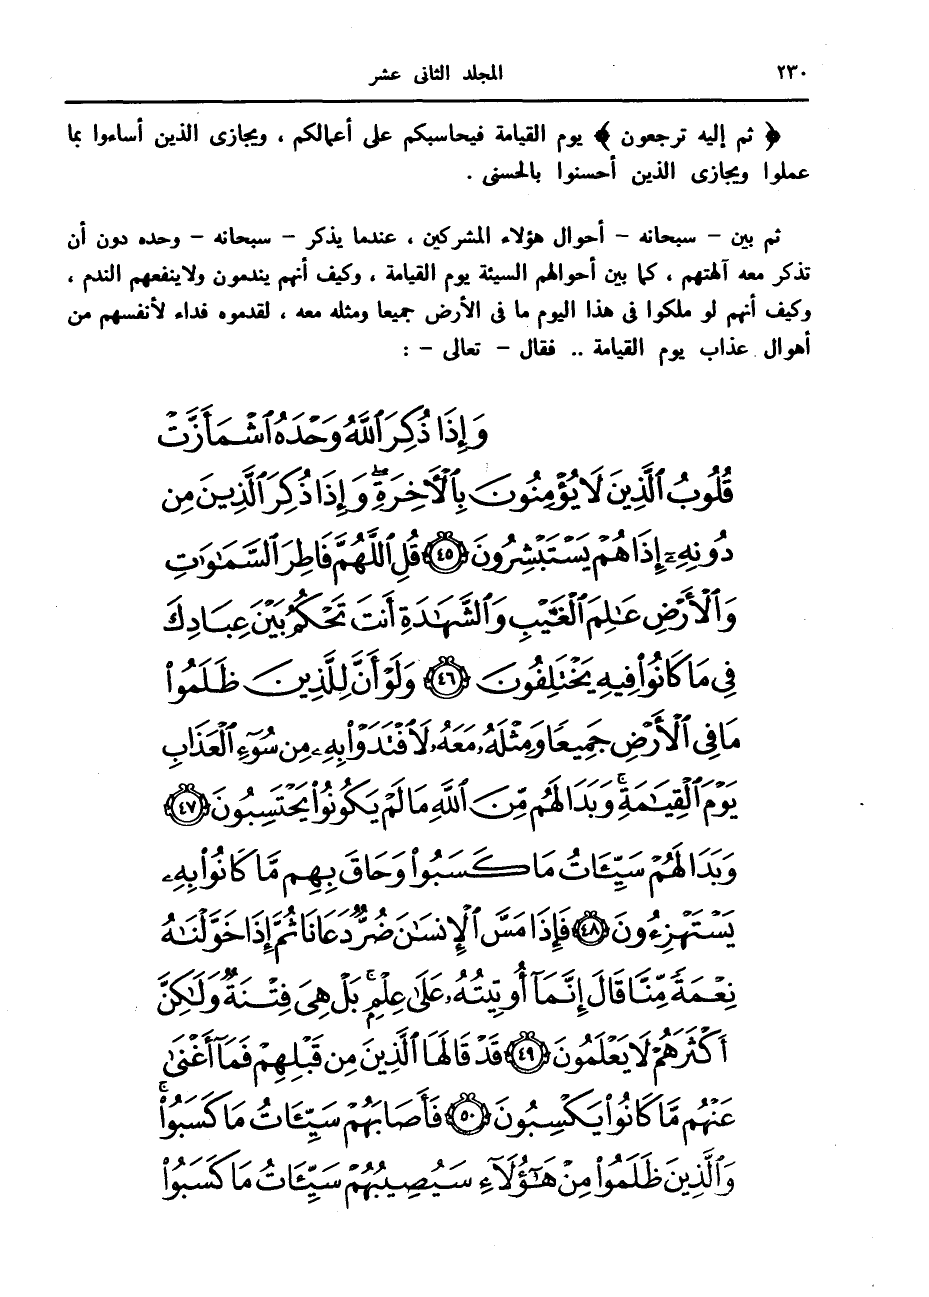 ٢٣٠ المجلد الثانى عشر
﴿ ثم إليه ترجعون ﴾ يوم القيامة فيحاسبكم على أعمالكم ، ويجازى الذين أساءوا بما
عملوا ويجازى الذين أحسنوا بالحسنى .
ثم بين – سبحانه – أحوال هؤلاء المشركين ، عندما يذكر – سبحانه – وحده دون أن
تذكر معه آلهتهم ، كما بين أحوالهم السيئة يوم القيامة ، وكيف أنهم يندمون ولاينفعهم الندم ،
وكيف أنهم لو ملكوا فى هذا اليوم ما فى الأرض جميعا ومثله معه ، لقدموه فداء لأنفسهم من
أهوال عذاب يوم القيامة .. فقال – تعالى – :
وَإِذَا ذُكِرَ ٱللَّهُ وَحْدَهُ ٱشْمَأَزَّتْ
قُلُوبُ ٱلَّذِينَ لَا يُؤْمِنُونَ بِٱلْأَخِرَةِۖ وَإِذَا ذُكِرَ ٱلَّذِينَ مِن
دُونِهِۦٓ إِذَا هُمْ يَسْتَبْشِرُونَ ﴿٤٥﴾ قُلِ ٱللَّهُمَّ فَاطِرَ ٱلسَّمَٰوَٰتِ
وَٱلْأَرْضِ عَٰلِمَ ٱلْغَيْبِ وَٱلشَّهَٰدَةِ أَنتَ تَحْكُمُ بَيْنَ عِبَادِكَ
فِى مَا كَانُوا۟ فِيهِ يَخْتَلِفُونَ ﴿٤٦﴾ وَلَوْ أَنَّ لِلَّذِينَ ظَلَمُوا۟
مَا فِى ٱلْأَرْضِ جَمِيعًا وَمِثْلَهُۥ مَعَهُۥ لَٱفْتَدَوْا۟ بِهِۦ مِن سُوٓءِ ٱلْعَذَابِ
يَوْمَ ٱلْقِيَٰمَةِۚ وَبَدَا لَهُم مِّنَ ٱللَّهِ مَا لَمْ يَكُونُوا۟ يَحْتَسِبُونَ ﴿٤٧﴾
وَبَدَا لَهُمْ سَيِّـَٔاتُ مَا كَسَبُوا۟ وَحَاقَ بِهِم مَّا كَانُوا۟ بِهِۦ
يَسْتَهْزِءُونَ ﴿٤٨﴾ فَإِذَا مَسَّ ٱلْإِنسَٰنَ ضُرٌّ دَعَانَا ثُمَّ إِذَا خَوَّلْنَٰهُ
نِعْمَةً مِّنَّا قَالَ إِنَّمَآ أُوتِيتُهُۥ عَلَىٰ عِلْمٍۭۚ بَلْ هِىَ فِتْنَةٌ وَلَٰكِنَّ
أَكْثَرَهُمْ لَا يَعْلَمُونَ ﴿٤٩﴾ قَدْ قَالَهَا ٱلَّذِينَ مِن قَبْلِهِمْ فَمَآ أَغْنَىٰ
عَنْهُم مَّا كَانُوا۟ يَكْسِبُونَ ﴿٥٠﴾ فَأَصَابَهُمْ سَيِّـَٔاتُ مَا كَسَبُوا۟ۚ
وَٱلَّذِينَ ظَلَمُوا۟ مِنْ هَٰٓؤُلَآءِ سَيُصِيبُهُمْ سَيِّـَٔاتُ مَا كَسَبُوا۟